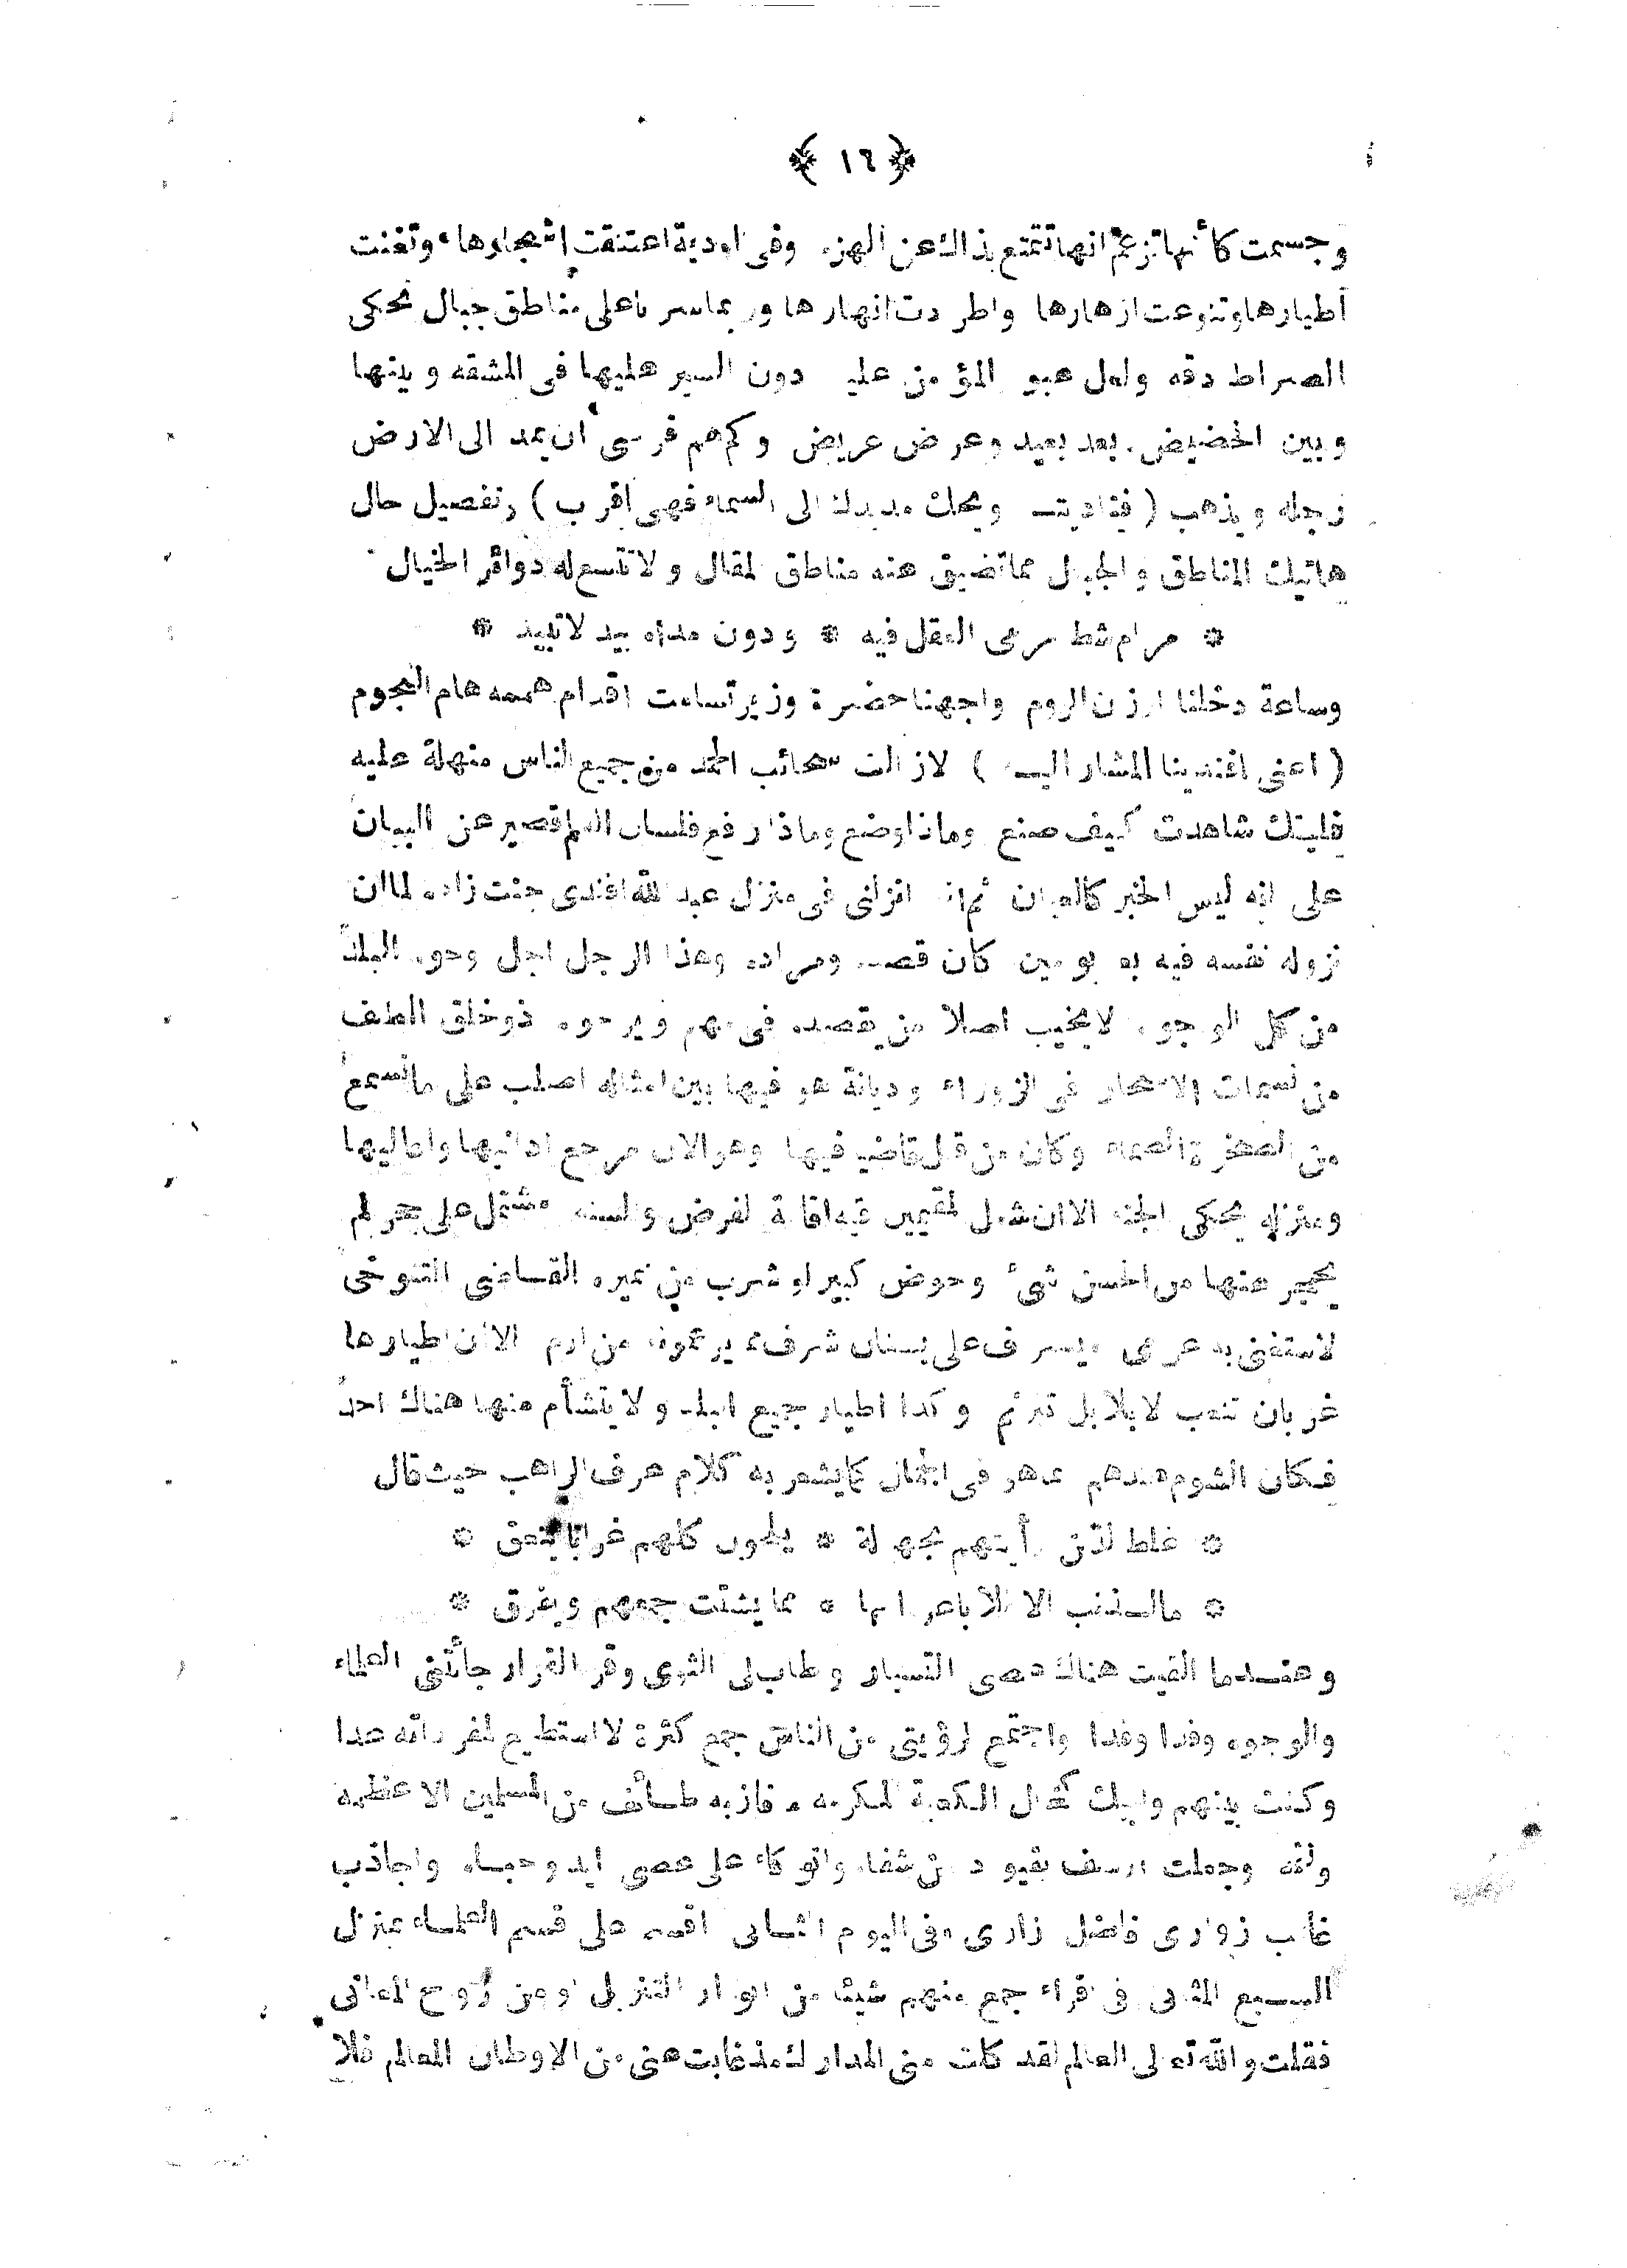 ﴿ ١٦ ﴾
وجسمت كأنها تزعم انها تمتنع بذلك عن الهزء وفى اودية اعتنقت اشجارها وتغنت
أطيارها وتنوعت ازهارها واطردت انهارها وربما سرنا على مناطق جبال تحكى
الصراط دقه ولعل عبور المؤمن عليه دون السير عليها فى المشقه وبينها
وبين الحضيض بعد بعيد وعرض عريض وكم هم فرسى أن يمد الى الارض
رجله ويذهب ( فناديت ويحك مد يدك الى السماء فهى اقرب ) وتفصيل حال
هاتيك المناطق والجبال مما تضيق عنه مناطق المقال ولا تتسع له دوائر الخيال
* مرام شط مرمى العقل فيه * ودون مداه بيد لا تبيد *
وساعة دخلنا ارزن الروم واجهنا حضرة وزير تسامت اقدام هممه هام النجوم
( اعنى افندينا المشار اليه ) لازالت سحائب الحمد من جميع الناس منهلة عليه
فليتك شاهدت كيف صنع وماذا وضع وماذا رفع فلسان القلم قصير عن البيان
على انه ليس الخبر كالعيان ثم انه انزلنى فى منزل عبد الله افندى جنت زاده لما ان
نزوله نفسه فيه بعد يومين كان قصده ومراده وهذا الرجل اجل وجوه البلد
من كل الوجوه لا يخيب اصلا من يقصده فى مهم ويرجوه ذو خلق الطف
من نسمات الاسحار فى الزوراء وديانة هو فيها بين امثاله اصلب على ما نسمع
من الصخرة الصماء وكان من قبل قاضيا فيها وهو الآن مرجع ادانيها واعاليها
ومنزله يحكى الجنه الا ان شغل المقيمين فيه اقامة الفرض والسنه مشتمل على حجر لم
يحجر عنها من الحسن شىء وحوض كبير لو شرب من نميره القساضى التنوخى
لاستغنى به عن ويسرف على بستان شرفه يرعوه عن ارم الا ان اطيارها
غربان تنعب لا بلابل تترنم وكذا اطيار جميع البلد ولا يتشأم منها هناك احد
فكان الشوم عندهم هو فى الجمال كما يشعر به كلام حيث قال
* غلط الذين رأيتهم بجهالة * يلحون كلهم غرابا ينعق *
* ما الذنب الا للاباعر انها * مما يشتت جمعهم ويفرق *
وعندما القيت هناك عصى التسيار وطاب لى الثوى وقر القرار جائتنى العلماء
والوجوه وفدا وفدا واجتمع لرؤيتى من الناس جمع كثرة لا استطيع لمفرداته عدا
وكنت بينهم وابيك كمثال الكعبة المكرمه فازبه طائف من المسلمين الا عظمه
ولثمه وجعلت ارسف بقيود من شفاه واتوكأ على عصى ايد وجباه واجاذب
غالب زوارى فاضل زارى وفى اليوم الثانى اقسم على قسم العلماء بمنزل
السبع المثانى فى اقراء جمع منهم شيئا من انوار التنزيل او من روح المعانى
فقلت والله تعالى العالم لقد كلت منى المدارك مذ غابت عنى من الاوطان المعالم فلا